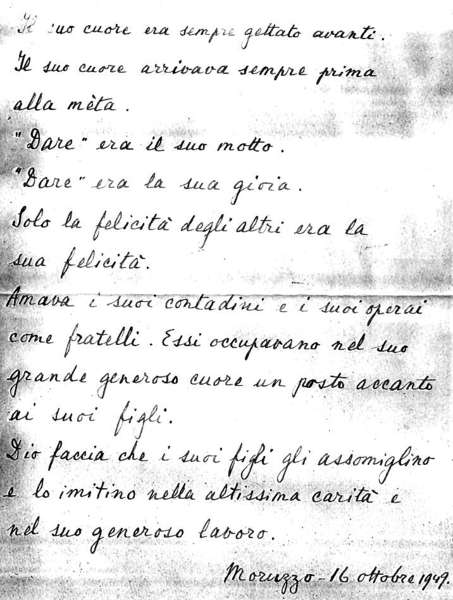 Il suo cuore era sempre gettato avanti.
Il suo cuore arrivava sempre prima
alla mèta.
"Dare" era il suo motto.
"Dare" era la sua gioia.
Solo la felicità degli altri era la
sua felicità.
Amava i suoi contadini e i suoi operai
come fratelli. Essi occupavano nel suo
grande generoso cuore un posto accanto
ai suoi figli.
Dio faccia che i suoi figli gli assomiglino
e lo imitino nella altissima carità e
nel suo generoso lavoro.
Moruzzo - 16 ottobre 1949.